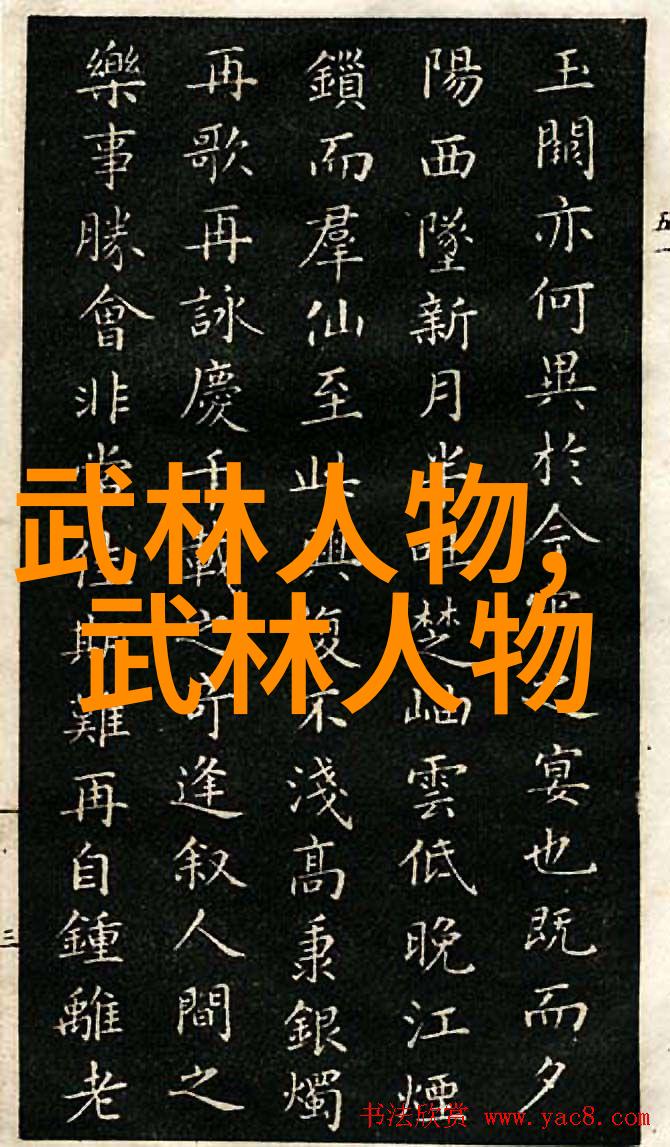 玉闕亦何異於今之宴也既而夕
陽西墜新月半吐楚岫雲低晚江煙
鎖而羣仙至此興復不淺高秉銀燭
再歌再詠慶千載之可逢叙人間之
樂事勝會非常佳期難再自鍾離老
武林人物,
武林人物
五
三
书法欣赏 www.yac8.com